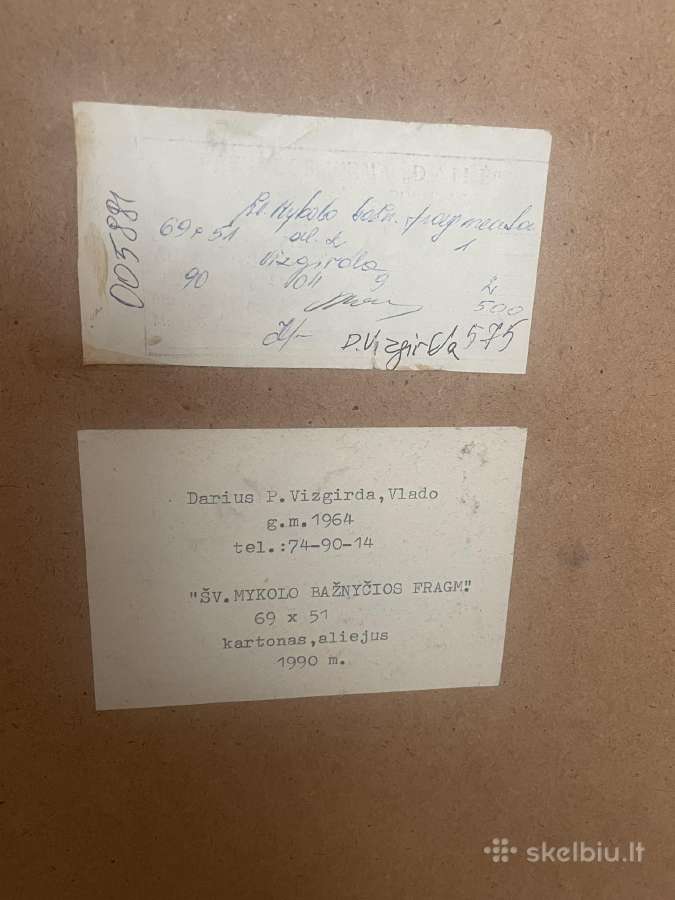 005881
Šv. Mykolo bažn. fragmentas
69x51
1
Vizgirda
90
9
500
D.Vizgirda 575
Darius P.Vizgirda,Vlado
g.m.1964
tel.:74-90-14
"ŠV.MYKOLO BAŽNYČIOS FRAGM."
69 x 51
kartonas,aliejus
1990 m.
skelbiu.lt